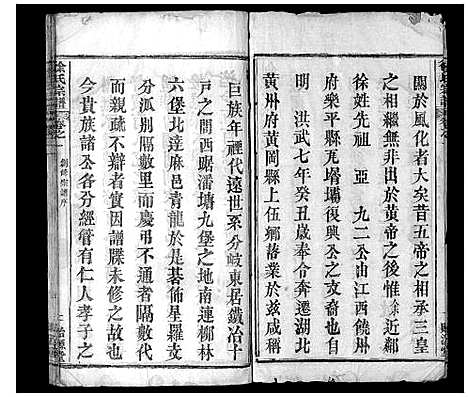 關於風化者大矣昔五帝之於承三皇
之相繼無非出於黃帝之後惟余近鄰
徐姓先祖亞九二公由江西饒州
府樂平縣瓦塝壩復興公之支裔也自
明洪武七年癸丑歲奉令奔遷湖北
黃州府黃岡縣上伍鄉落業於兹咸稱
巨族年禋代遠世系分岐東居鐵冶十
戶之間西踞潘塘九堡之地南連柳林
六堡北達麻邑青龍於是碁佈星羅支
分派別隔數里而慶弔不通者隔數代
而親疏不辯者實因譜牒未修之故也
今貴族諸公各分經管有仁人孝子之
徐氏宗譜
卷之一
創修宗譜序